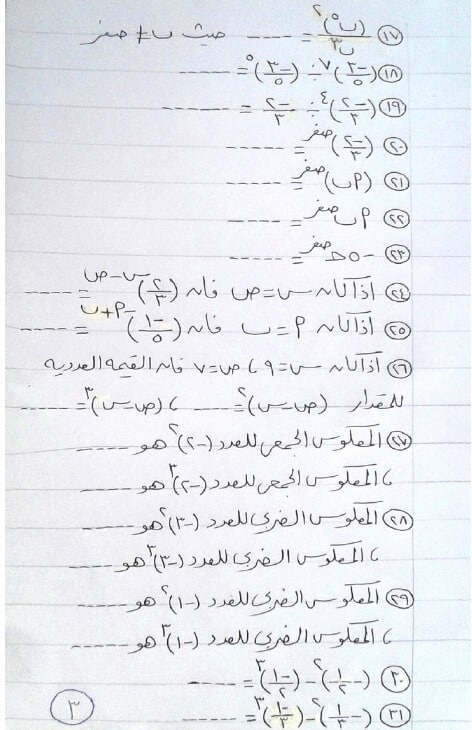 ١٧ (ب^٥)^٢ / ب^٣ = ---- حيث ب ≠ صفر
١٨ (-٣/٥)^٧ ÷ (-٣/٥)^٥ = -----
١٩ (-٢/٣)^٤ ÷ -٢/٣ = -----
٢٠ (-٢/٣)^صفر = -----
٢١ (٢ب)^صفر = -----
٢٢ ٢ب^صفر = ----
٢٣ -٥ح^صفر = -----
٢٤ اذا كان س = ص فان (٢/٣)^(س-ص) = ----
٢٥ اذا كان ٢ = ب فان (-١/٥)^(-٢+ب) = ----
٢٦ اذا كان س = ٩ ، ص = ٧ فان القيمة العددية
للمقدار (ص-س)^٢ = ---- ، (ص-س)^٣ = -----
٢٧ المعكوس الجمعى للعدد (-٢)^٢ هو -----
، المعكوس الجمعى للعدد (-٢)^٣ هو -----
٢٨ المعكوس الضربى للعدد (-٣)^٢ هو -----
، المعكوس الضربى للعدد (-٣)^٣ هو -----
٢٩ المعكوس الضربى للعدد (-١)^٢ هو -----
، المعكوس الضربى للعدد (-١)^٣ هو -----
٣٠ (-١/٢)^٢ - (-١/٢)^٣ = -----
٣١ (-١/٣)^٢ - (-١/٣)^٣ = -----
٣